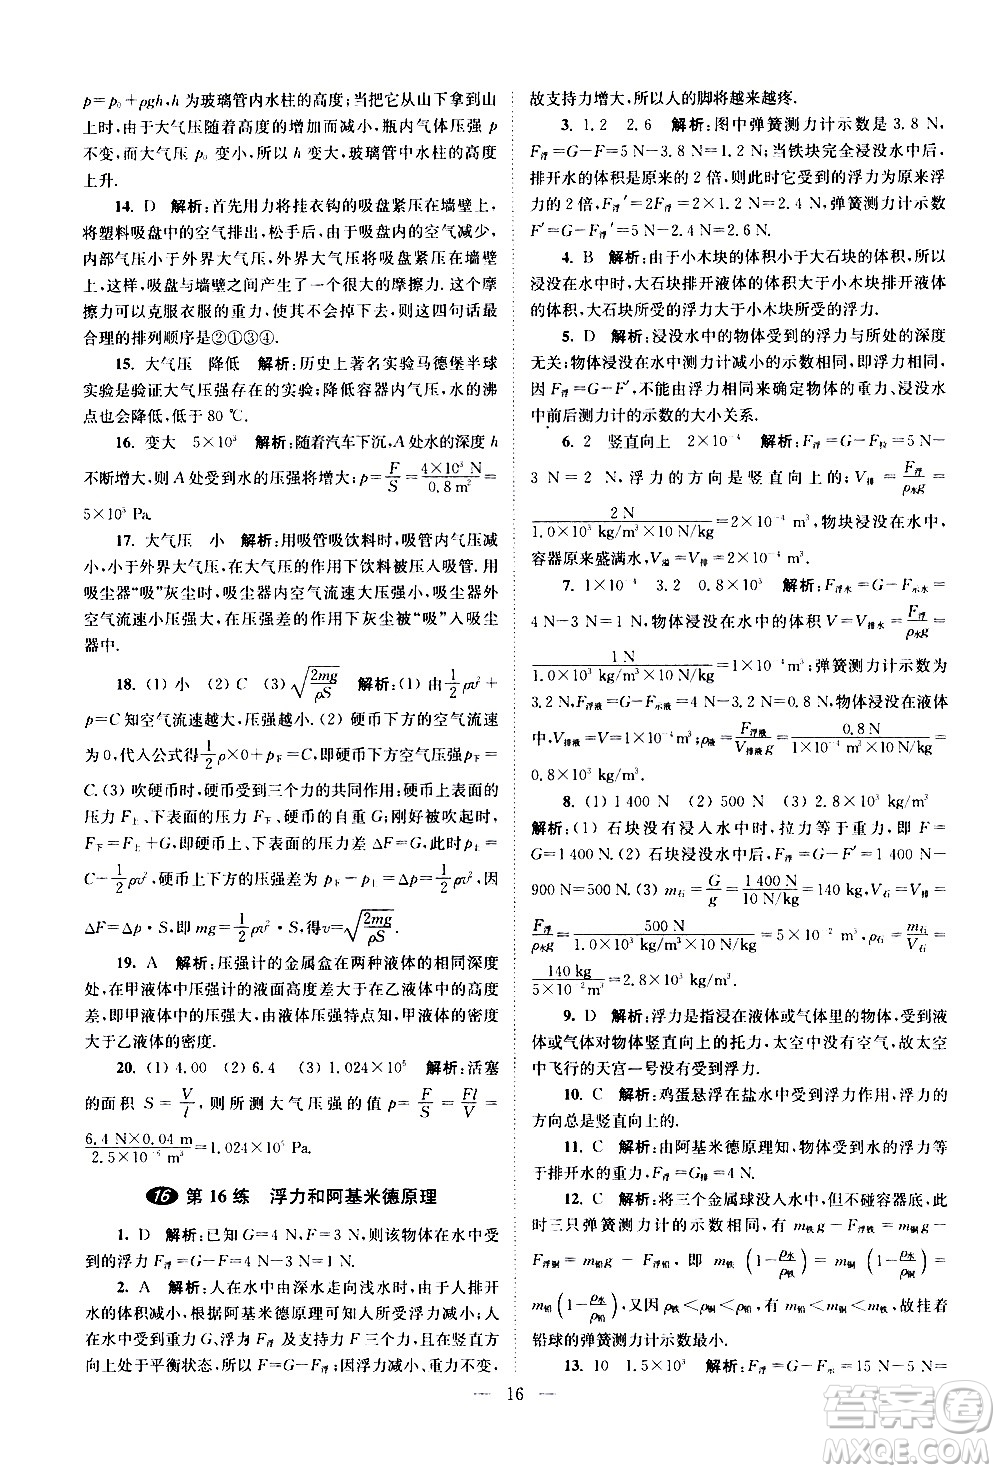 p=p₀+ρgh,h 为玻璃管内水柱的高度;当把它从山下拿到山
上时,由于大气压随着高度的增加而减小,瓶内气体压强 p
不变,大气压 p₀ 变小,所以 h 变大,玻璃管中水柱的高度
上升.
14. D 解析:首先用力将挂衣钩的吸盘紧压在墙壁上,
将塑料吸盘中的空气排出,松手后,由于其内部空气减少,
内部气压小于外界大气压,大气压就把吸盘紧压在墙壁
上,这样,吸盘与墙壁之间就有了较大的摩擦力.这个摩
擦力可以克服衣服的重力,使其不会掉下去.这四句话最
合理的排列顺序是②①③④.
15. 大气压 降低 解析:历史上著名实验马德堡半球
实验是验证大气压强存在的实验;降低容器内气压,水的沸
点也降低,低于 80 ℃.
16. 变大 5×10³ 解析:随着汽车下沉,A 处水的深度 h
不断变大,则 A 处受到水的压强将增大;p=F/S=4×10³ N/0.8 m²=
5×10³ Pa.
17. 大气压 小 解析:用吸管吸饮料时,吸管内气压减
小,小于外界大气压,在大气压的作用下饮料被吸入吸管.
吸尘器“吸”灰尘时,吸尘器内空气流速大压强小,外界
空气流速小压强大,在压强差的作用下灰尘被“吸”入吸尘
器中.
18. (1) 小 (2) C (3) √(2mg/ρS) 解析:(1) 由 1/2 ρv²+
p=C 知空气流速越大,压强越小.(2) 硬币下方的空气流速
为 0,代入公式得 1/2 ρ×0+p下=C,即硬币下方的压强 p下=
C.(3) 吹硬币时,硬币受到三个力的共同作用:硬币上表面的
压力 F上、下表面的压力 F下、硬币的自重 G;刚好被吹起时,
F下=F上+G,即硬币上、下表面的压力差 ΔF=G,此时 p上=
C−1/2 ρv²,硬币下、上表面的压强差为 p下−p上=1/2 ρv²,因
ΔF=Δp·S,即 mg=1/2 ρv²·S,得 v=√(2mg/ρS).
19. A 解析:压强计的金属盒在两种液体的相同深度
处,在甲液体中压强计的液面高度差大于在乙液体中的高度
差,即甲液体中的压强大,由液体压强特点知,甲液体的密度
大于乙液体的密度.
20. (1) 4.00 (2) 6.4 (3) 1.024×10⁵ 解析:活塞
的面积 S=V/l,则所测大气压强的值 p=F/S=Fl/V=
6.4 N×0.04 m/2.5×10⁻⁶ m³=1.024×10⁵ Pa.
16 第 16 练 浮力和阿基米德原理
1. D 解析:已知 G=4 N,F=3 N,则该物体在水中受
到的浮力 F浮=G−F=4 N−3 N=1 N.
2. A 解析:人在水中由深水走向浅水时,由于人排开
水的体积减小,根据阿基米德原理可知人所受浮力减小;
人在水中受到重力 G、浮力 F浮 及支持力 F 三个力在竖直方
向上处于平衡状态,所以 G=F浮+F;因浮力减小,重力不变,
故支持力增大,所以人的脚将越来越疼.
3. 1.2 2.6 解析:图中弹簧测力计示数是 3.8 N,
F浮=G−F=5 N−3.8 N=1.2 N;当铁块完全浸没水中后,
排开水的体积是原来的 2 倍,则此时受到的浮力是原来浮力
的 2 倍,F浮′=2F浮=2×1.2 N=2.4 N,弹簧测力计示数
F′=G−F浮′=5 N−2.4 N=2.6 N.
4. B 解析:由于小木块的体积小于大石块的体积,所以
浸没水中时,大石块排开液体的体积大于小木块排开液体的
体积,大石块所受的浮力大于小木块所受的浮力.
5. D 解析:浸没水中的物体受到的浮力与所处的深度
无关;物体浸没在水中测力计减小的示数相同,即浮力相同,
因 F浮=G−F′,不能由浮力来确定物体的重力、浸没在水
中前后测力计的示数的大小关系.
6. 2 竖直向上 2×10⁻⁴ 解析:F浮=G−F拉=5 N−
3 N=2 N,浮力的方向是竖直向上的;V排=F浮/ρ水g=
2 N/1.0×10³ kg/m³×10 N/kg=2×10⁻⁴ m³,物块浸没水中,
容器原来盛满水,V溢=V排=2×10⁻⁴ m³.
7. 1×10⁻⁴ 3.2 0.8×10³ 解析:F浮水=G−F示水=
4 N−3 N=1 N,物体浸没水中的体积 V=V排水=F浮/ρ水g=
1 N/1.0×10³ kg/m³×10 N/kg=1×10⁻⁴ m³;弹簧测力计示数为
3.2 N,F浮液=G−F示液=4 N−3.2 N=0.8 N,物体浸没在液体
中,V排液=V=1×10⁻⁴ m³;ρ液=F浮液/V排液g=0.8 N/1×10⁻⁴ m³×10 N/kg=
0.8×10³ kg/m³.
8. (1) 1 400 N (2) 500 N (3) 2.8×10³ kg/m³
解析:(1) 石块没有浸入水中时,拉力等于重力,即 F=
G=1 400 N.(2) 石块浸没水中时,F浮=G−F′=1 400 N−
900 N=500 N.(3) m石=G/g=1 400 N/10 N/kg=140 kg,V石=V排=
F浮/ρ水g=500 N/1.0×10³ kg/m³×10 N/kg=5×10⁻² m³,ρ石=m石/V石
=140 kg/5×10⁻² m³=2.8×10³ kg/m³.
9. D 解析:浮力是指浸在液体或气体里的物体,受到
液体或气体竖直向上的托力,太空中没有空气,所以太空
中飞行的天宫一号没有受到浮力.
10. C 解析:鸡蛋悬浮在盐水中受到浮力作用,浮力的
方向总是竖直向上的.
11. C 解析:由阿基米德原理知,物体受到水的浮力等
于排开水的重力,即为 4 N.
12. C 解析:将三个金属球没入水中,不碰容器底,此
时三只弹簧测力计的示数相等,有 m铁g−F浮铁=m铜g−
F浮铜=m铅g−F浮铅,即 m铁(1−ρ水/ρ铁)=m铜(1−ρ水/ρ铜)=
m铅(1−ρ水/ρ铅),又因 ρ铁<ρ铜<ρ铅,所以 m铁>m铜>m铅,故挂有
铅球的弹簧测力计示数最小.
13. 10 1.5×10³ 解析:F浮=G−F示=15 N−5 N
— 16 —
答案圈
MXQE.COM